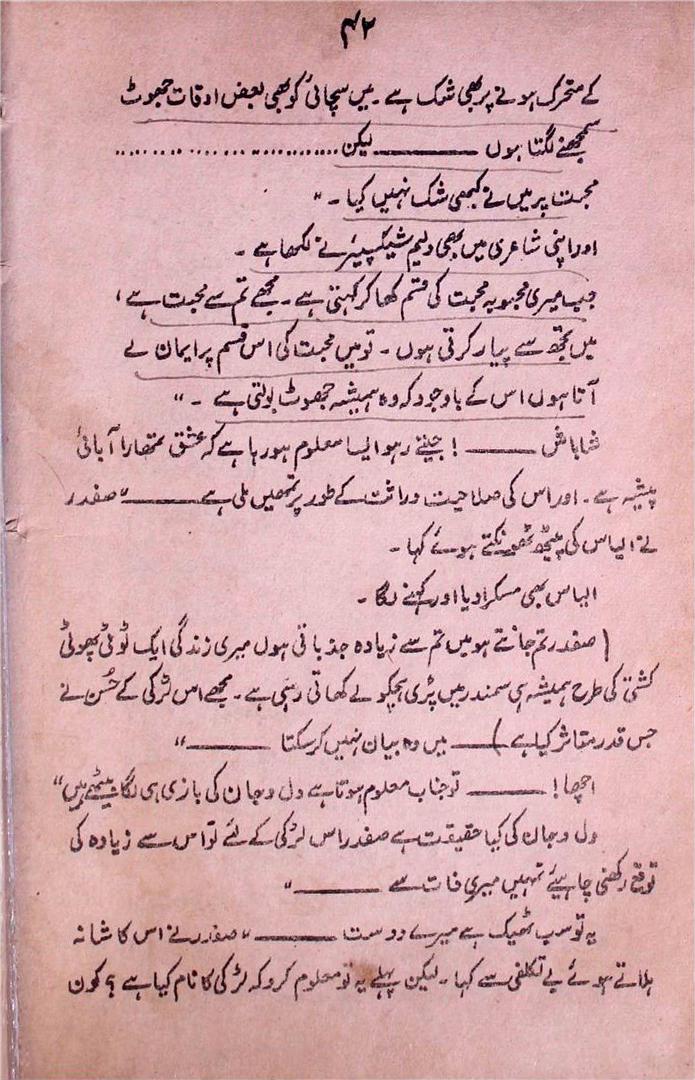 ۴۲
کے متحرک ہونے پر بھی شک ہے ۔ میں سچائی کو بھی بعض اوقات جھوٹ
سمجھنے لگتا ہوں ــــــــــــ لیکن ................................
محبت پر میں نے کبھی شک نہیں کیا ۔ "
اور اپنی شاعری میں بھی ولیم شیکسپیئر نے لکھا ہے ۔
جب میری محبوبہ محبت کی قسم کھا کر کہتی ہے ۔ مجھے تم سے محبت ہے ،
میں تجھ سے پیار کرتی ہوں ۔ تو میں محبت کی اس قسم پر ایمان لے
آتا ہوں اس کے باوجود کہ وہ ہمیشہ جھوٹ بولتی ہے ۔ "
شاباش ــــــــــــ ! جیتے رہو ایسا معلوم ہو رہا ہے کہ عشق تمھارا آبائی
پیشہ ہے ۔ اور اس کی صلاحیت وراثت کے طور پر تمھیں ملی ہے ــــــــــــ " صفدر
نے الیاس کی پیٹھ ٹھونکتے ہوئے کہا ۔
الیاس بھی مسکرا دیا اور کہنے لگا ۔
( صفدر تم جانتے ہو میں تم سے زیادہ جذباتی ہوں میری زندگی ایک ٹوٹی پھوٹی
کشتی کی طرح ہمیشہ ہی سمندر میں پڑی ہچکولے کھاتی رہی ہے ۔ مجھے اس لڑکی کے حُسن نے
جس قدر متاثر کیا ہے ) ــــــــــــ میں وہ بیان نہیں کر سکتا ــــــــــــ "
اچھا ! ــــــــــــ تو جناب معلوم ہوتا ہے دل و جان کی بازی ہی لگا بیٹھے ہیں "
دل و جان کی کیا حقیقت ہے صفدر اس لڑکی کے لئے تو اس سے زیادہ کی
توقع رکھنی چاہیئے تمہیں میری ذات سے ــــــــــــ "
یہ تو سب ٹھیک ہے میرے دوست ــــــــــــ " صفدر نے اس کا شانہ
ہلاتے ہوئے بے تکلفی سے کہا ۔ لیکن پہلے یہ تو معلوم کرو کہ لڑکی کا نام کیا ہے ؟ کون